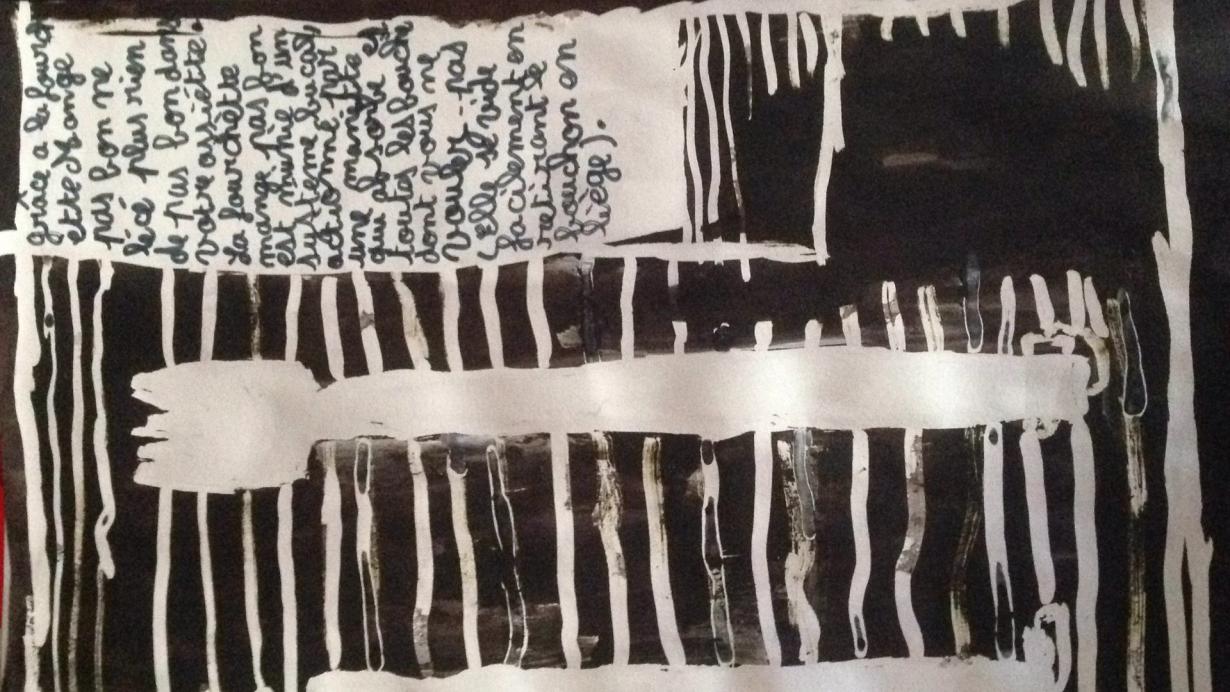 grâce à la fourch
ette Mange
pas bon ne
lécé plus rien
de pas bon dans
votre assiette.
La fourchètte
mange pas bon
est munie d'un
système bucal,
actionné par
une manette
qui absorbe
toutes les bouché
dont vous ne
voulez pas
(Elle se vide
facilement en
retirant le
bouchon en
liège).